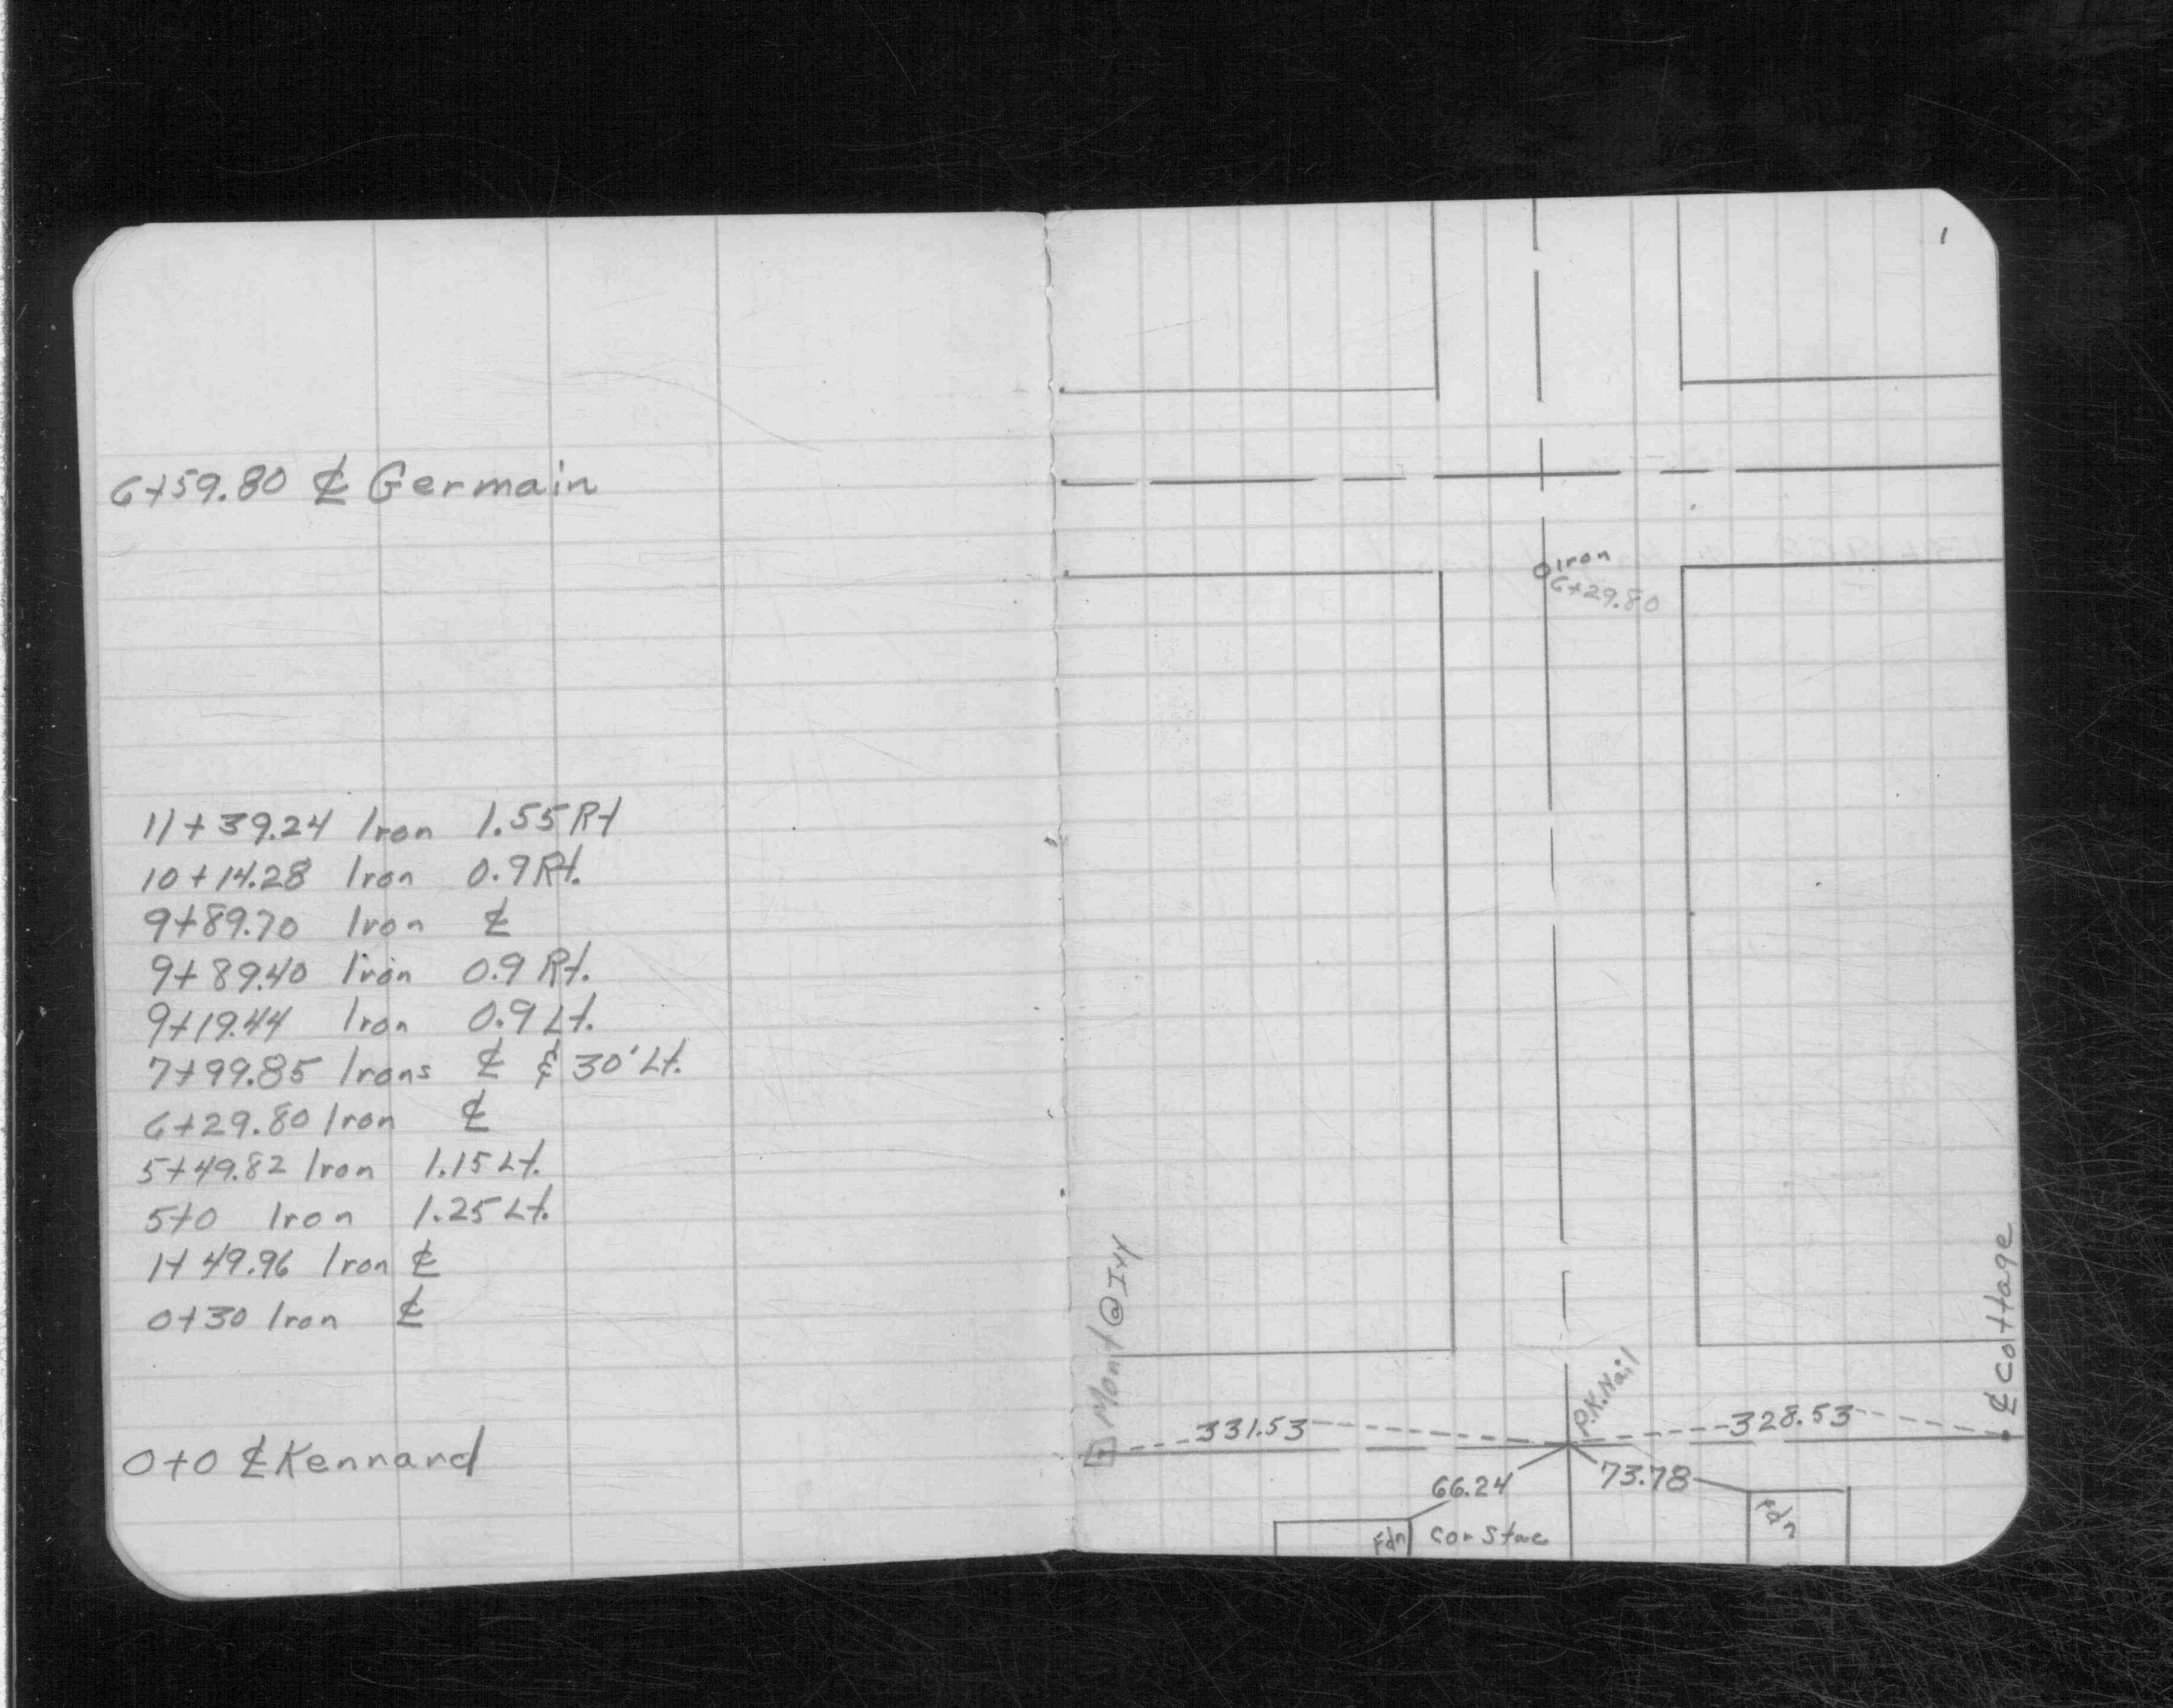 6+59.80 ℄ Germain
11+39.24 Iron 1.55 Rt
10+14.28 Iron 0.9 Rt.
9+89.70 Iron ℄
9+89.40 Iron 0.9 Rt.
9+19.44 Iron 0.9 Lt.
7+99.85 Irons ℄ & 30' Lt.
6+29.80 Iron ℄
5+49.82 Iron 1.15 Lt.
5+0 Iron 1.25 Lt.
1+49.96 Iron ℄
0+30 Iron ℄
0+0 ℄ Kennard
1
Iron
6+29.80
Mon't @ Ivy
℄ Cottage
P.K. Nail
331.53
328.53
66.24
73.78
Fdn
Cor
Fdn